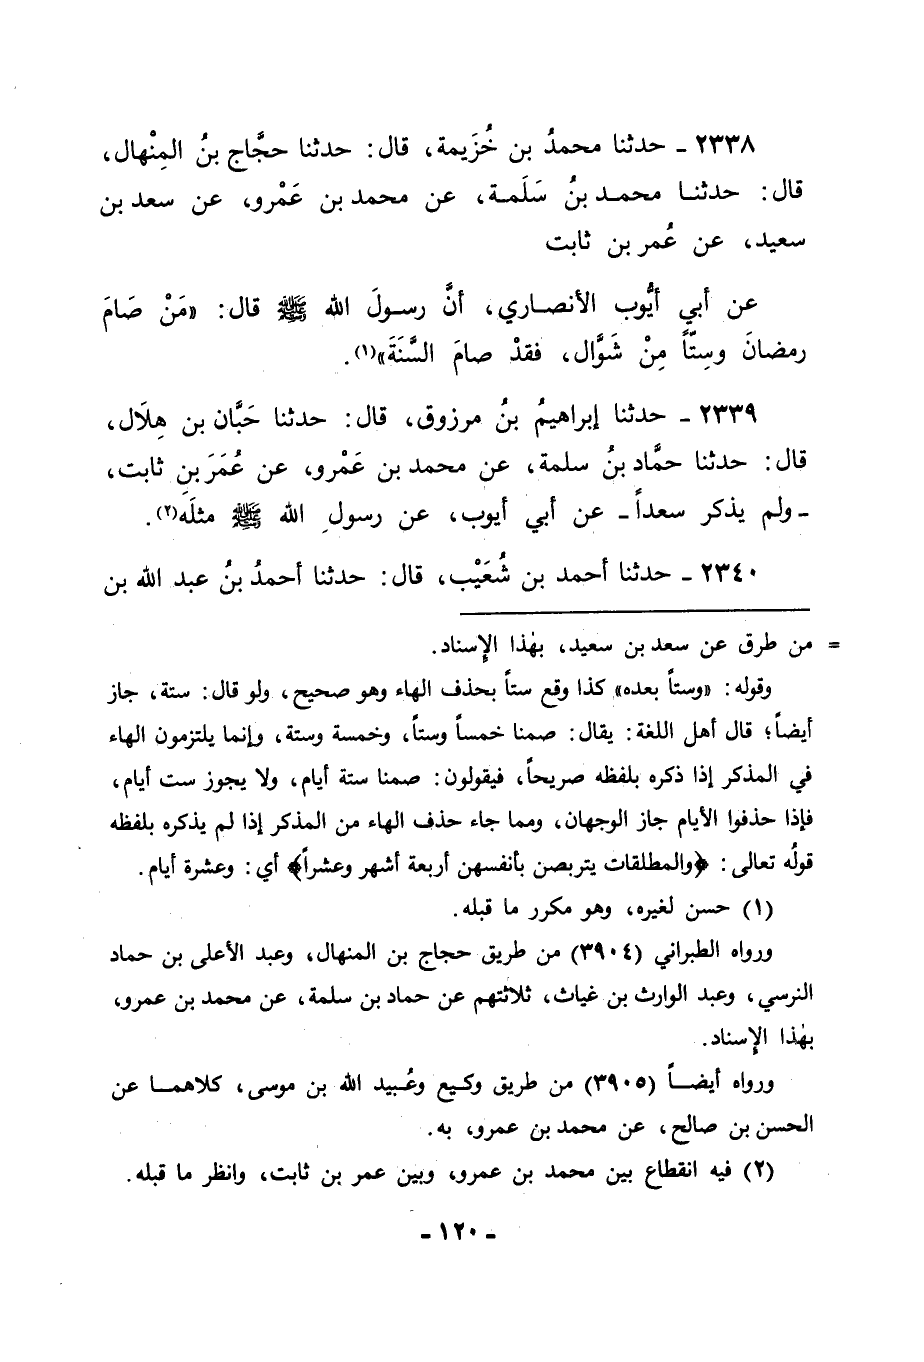 ٢٣٣٨ ـ حدثنا محمدُ بن خُزَيمة، قال: حدثنا حجَّاج بنُ المِنْهال،
قال: حدثنا محمد بنُ سَلَمة، عن محمد بن عَمْرو، عن سعد بن
سعيد، عن عُمر بن ثابت
عن أبي أيُّوب الأنصاري، أنَّ رسولَ الله ﷺ قال: «مَنْ صَامَ
رمضانَ وسِتّاً مِنْ شَوَّال، فقدْ صامَ السَّنَةَ»(١).
٢٣٣٩ ـ حدثنا إبراهيمُ بنُ مرزوق، قال: حدثنا حَبَّان بن هِلَال،
قال: حدثنا حمَّاد بنُ سلمة، عن محمد بن عَمْرو، عن عُمَرَ بنِ ثابت،
ـ ولم يذكر سعداً ـ عن أبي أيوب، عن رسولِ الله ﷺ مثلَه(٢).
٢٣٤٠ ـ حدثنا أحمد بن شُعَيْب، قال: حدثنا أحمدُ بنُ عبد الله بن
= من طرق عن سعد بن سعيد، بهٰذا الإِسناد.
وقوله: «وستاً بعده» كذا وقع ستاً بحذف الهاء وهو صحيح، ولو قال: ستة، جاز
أيضاً؛ قال أهل اللغة: يقال: صمنا خمساً وستاً، وخمسة وستة، وإنما يلتزمون الهاء
في المذكر إذا ذكره بلفظه صريحاً، فيقولون: صمنا ستة أيام، ولا يجوز ست أيام،
فإذا حذفوا الأيام جاز الوجهان، ومما جاء حذف الهاء من المذكر إذا لم يذكره بلفظه
قولُه تعالى: ﴿والمطلقات يتربصن بأنفسهن أربعة أشهر وعشراً﴾ أي: وعشرة أيام.
(١) حسن لغيره، وهو مكرر ما قبله.
ورواه الطبراني (٣٩٠٤) من طريق حجاج بن المنهال، وعبد الأعلى بن حماد
النرسي، وعبد الوارث بن غياث، ثلاثتهم عن حماد بن سلمة، عن محمد بن عمرو،
بهٰذا الإِسناد.
ورواه أيضاً (٣٩٠٥) من طريق وكيع وعُبيد الله بن موسى، كلاهما عن
الحسن بن صالح، عن محمد بن عمرو، به.
(٢) فيه انقطاع بين محمد بن عمرو، وبين عمر بن ثابت، وانظر ما قبله.
ـ ١٢٠ ـ